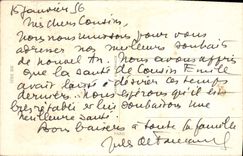 15 Janvier 56
Mes chers Cousins,
Nous nous unissons pour vous
adresser nos meilleurs souhaits
de nouvel An. Nous avons appris
que la santé de Cousin Emile
avait laissé à désirer ces temps
derniers. Nous espérons qu'il est
très rétabli et lui souhaitons une
meilleure santé.
Bons baisers à toute la famille
Jules de